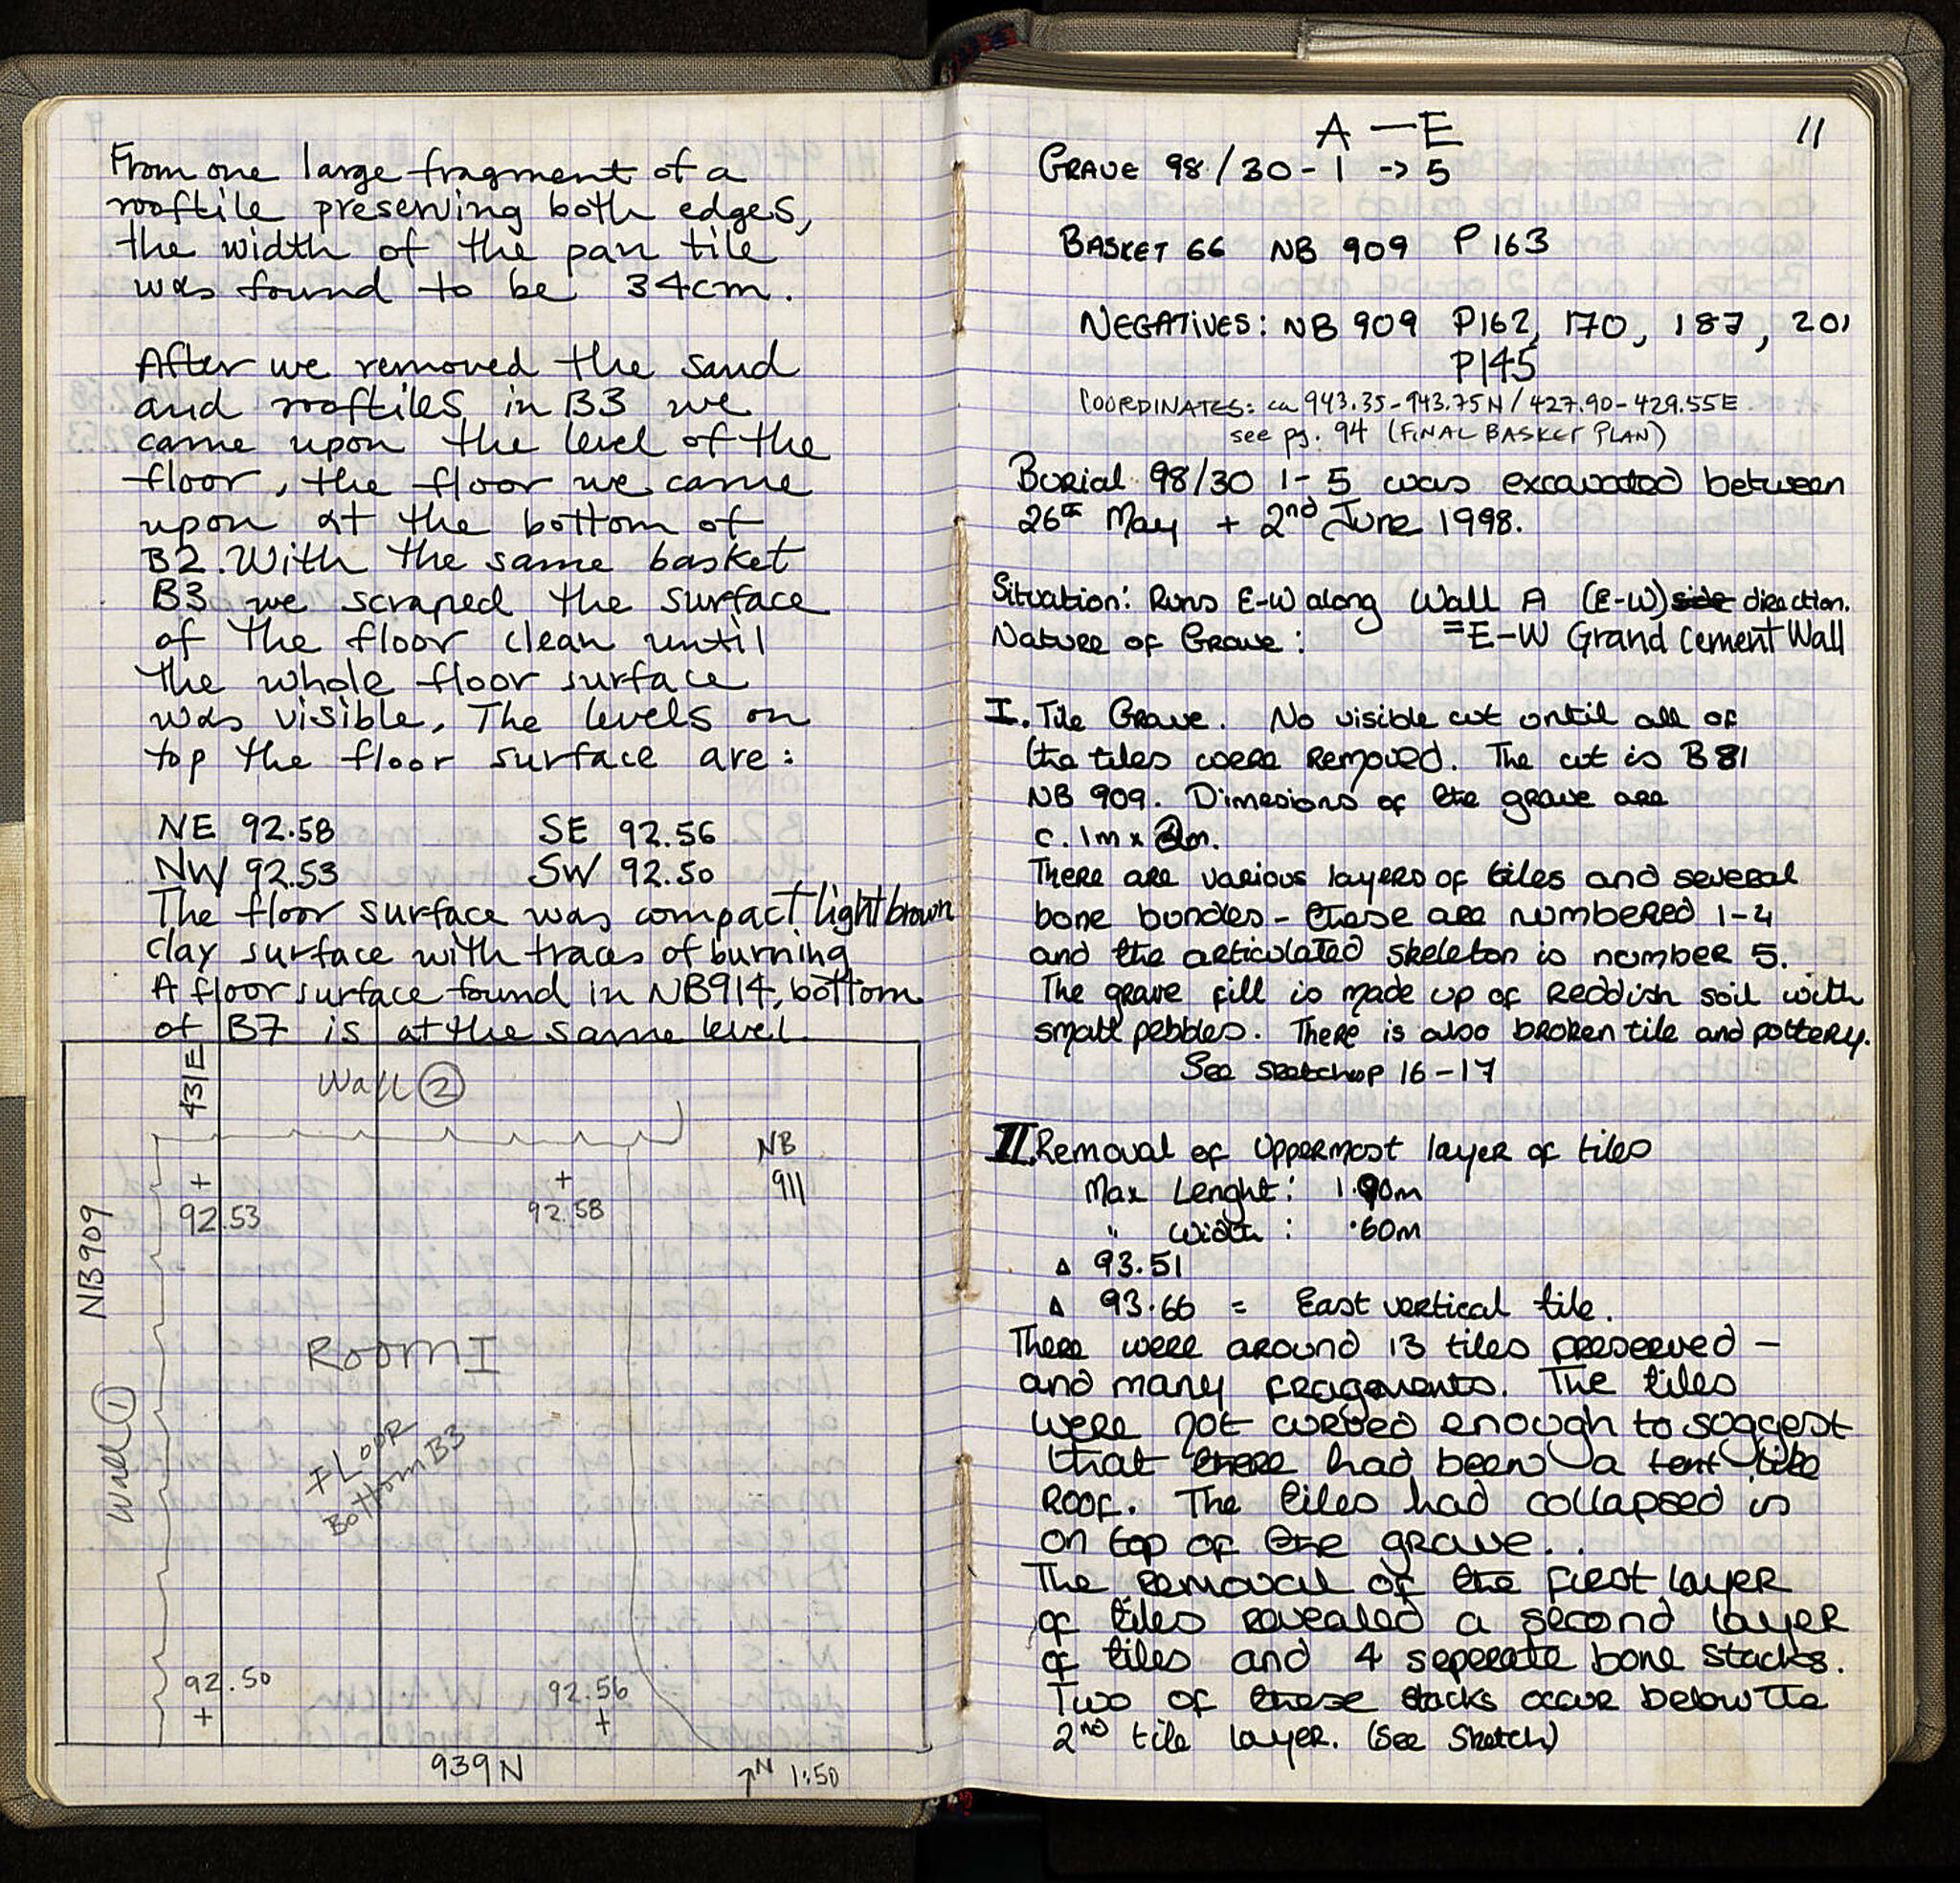 From one large fragment of a
rooftile preserving both edges,
the width of the pan tile
was found to be 34cm.
After we removed the sand
and rooftiles in B3 we
came upon the level of the
floor, the floor we came
upon at the bottom of
B2. With the same basket
B3 we scraped the surface
of the floor clean until
the whole floor surface
was visible. The levels on
top the floor surface are:
NE 92.58 SE 92.56
NW 92.53 SW 92.50
The floor surface was compact light brown
clay surface with traces of burning
A floor surface found in NB914, bottom
of B7 is at the same level.
431E
Wall 2
NB
911
+ +
92.53 92.58
NB909
Room I
Wall 1
Floor
Bottom B3
92.50 92.56
+ +
939N
N 1:50
11
A — E
GRAVE 98/30-1 -> 5
BASKET 66 NB 909 P163
NEGATIVES: NB 909 P162, 170, 187, 201
P145
COORDINATES: ca 943.35-943.75N / 427.90-429.55E
see pg. 94 (FINAL BASKET PLAN)
Burial 98/30 1-5 was excavated between
26th May + 2nd June 1998.
Situation: Runs E-W along Wall A (E-W) side direction.
Nature of Grave: =E-W Grand Cement Wall
I. Tile Grave. No visible cut until all of
the tiles were removed. The cut is B81
NB 909. Dimesions of the grave are
c. 1m x 2m.
There are various layers of tiles and several
bone bundes - these are numbered 1-4
and the articulated skeleton is number 5.
The grave fill is made up of reddish soil with
small pebbles. There is also broken tile and pottery.
See sketch p 16-17
II. Removal of Uppermost layer of tiles
Max Lenght: 1.90m
" Width: .60m
Δ 93.51
Δ 93.66 = East vertical tile.
There were around 13 tiles preserved -
and many fragments. The tiles
were not curved enough to suggest
that there had been a tent like
roof. The tiles had collapsed is
on top of the grave..
The removal of the first layer
of tiles revealed a second layer
of tiles and 4 seperate bone stacks.
Two of these stacks occur below the
2nd tile layer. (See Sketch)